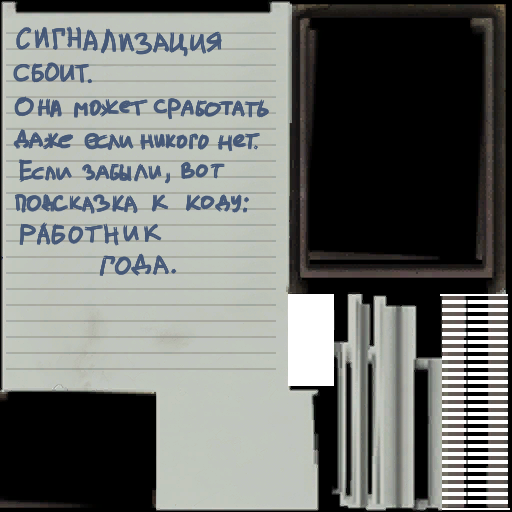 СИГНАЛИЗАЦИЯ
СБОИТ.
ОНА МОЖЕТ СРАБОТАТЬ
ДАЖЕ ЕСЛИ НИКОГО НЕТ.
ЕСЛИ ЗАБЫЛИ, ВОТ
ПОДСКАЗКА К КОДУ:
РАБОТНИК
ГОДА.